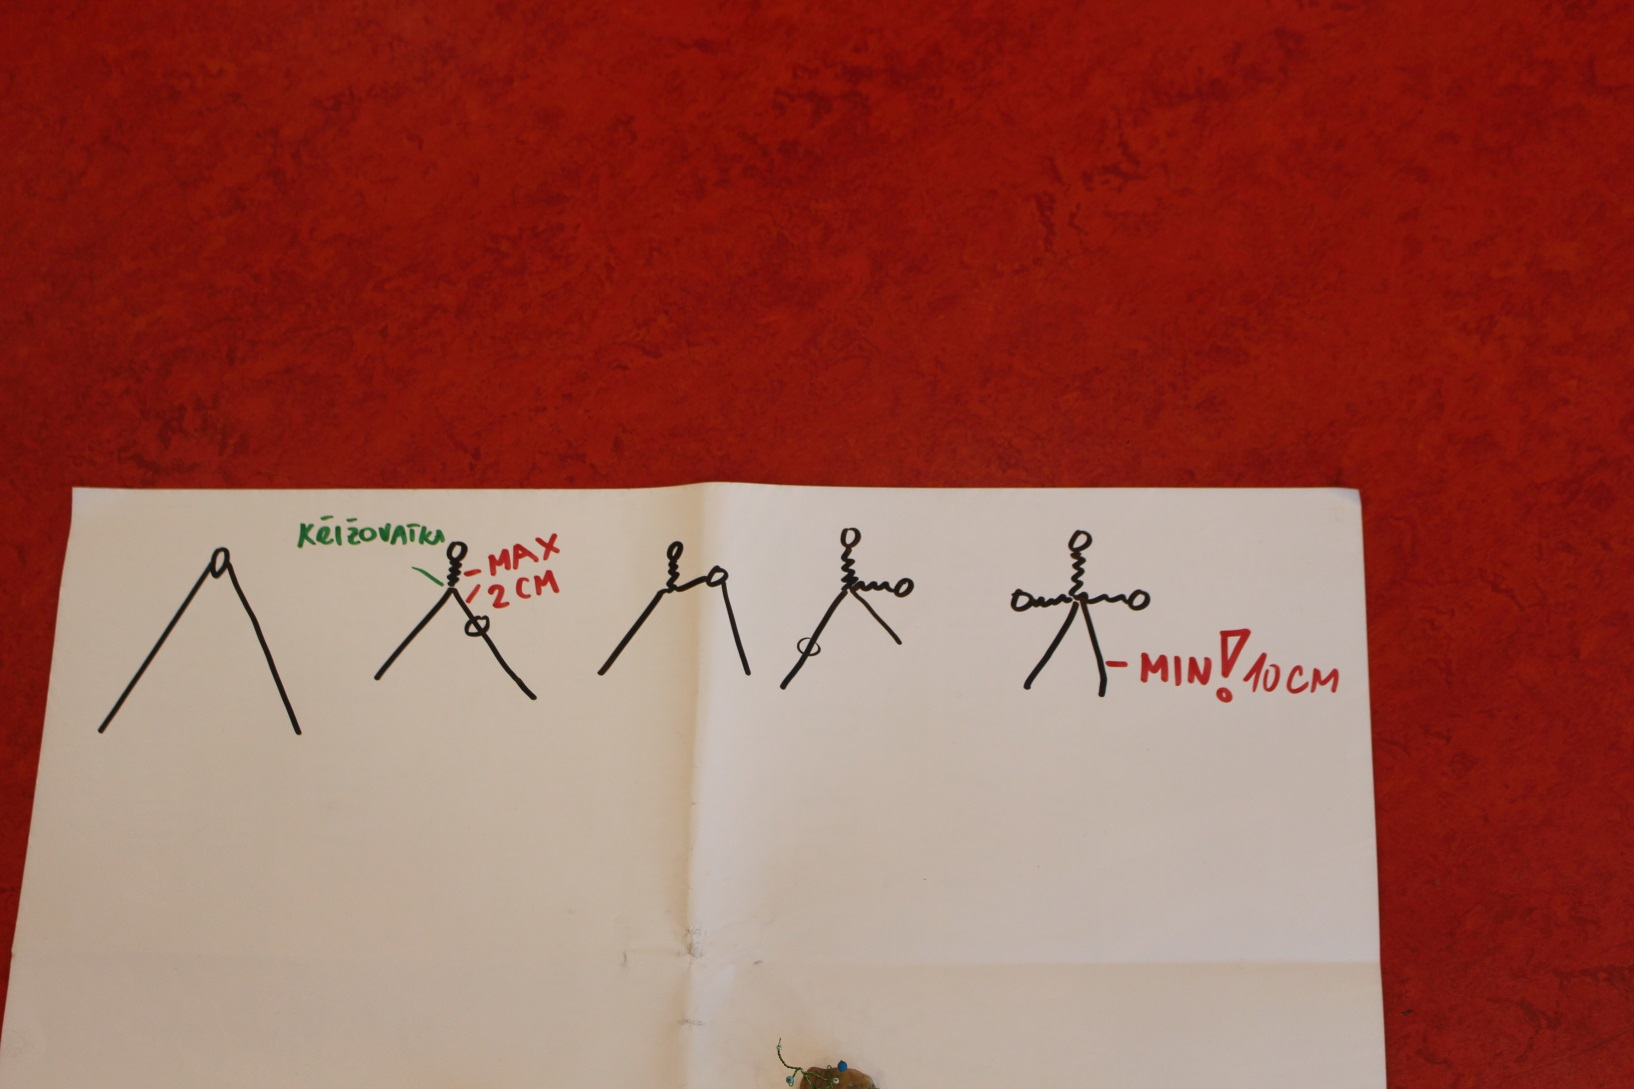 KŘIŽOVATKA
MAX
2 CM
MIN! 10 CM